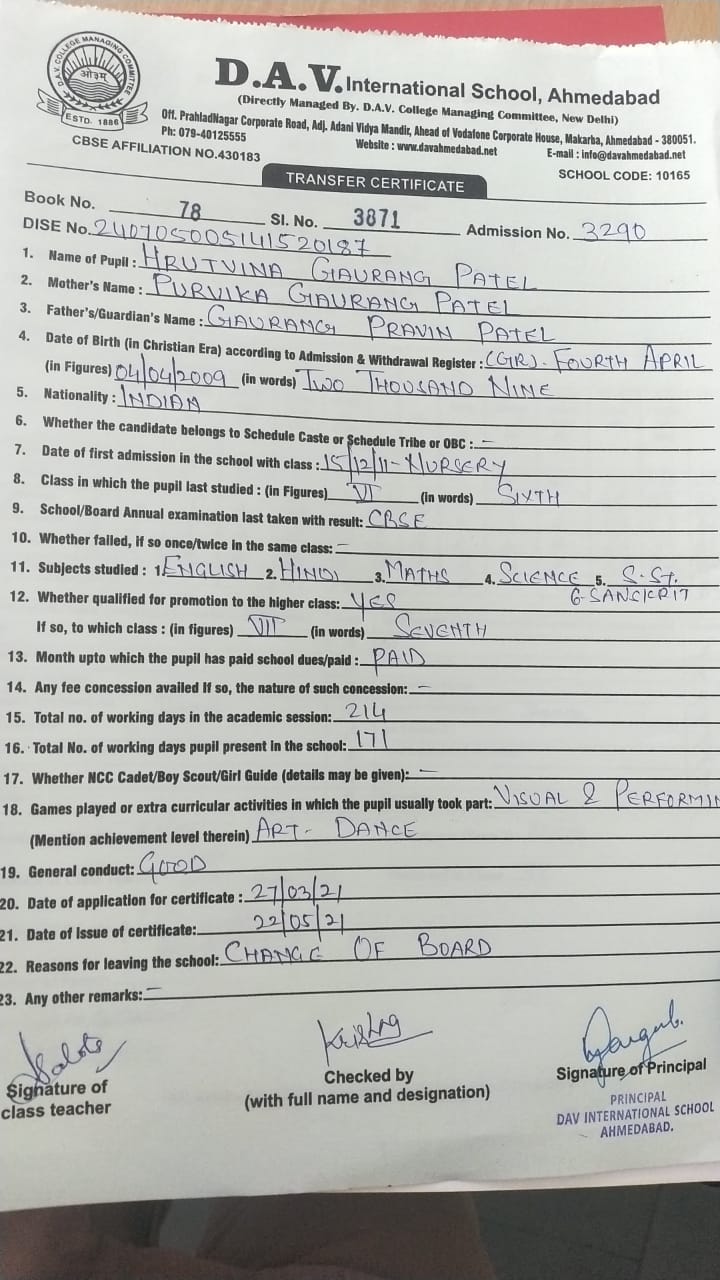 D.A.V. COLLEGE MANAGING COMMITTEE
ओ३म्
ESTD. 1886
D.A.V. International School, Ahmedabad
(Directly Managed By. D.A.V. College Managing Committee, New Delhi)
Off. PrahladNagar Corporate Road, Adj. Adani Vidya Mandir, Ahead of Vodafone Corporate House, Makarba, Ahmedabad - 380051.
Ph: 079-40125555 Website : www.davahmedabad.net E-mail : info@davahmedabad.net
CBSE AFFILIATION NO.430183 SCHOOL CODE: 10165
TRANSFER CERTIFICATE
Book No. 78 Sl. No. 3871 Admission No. 3290
DISE No. 240705005141520187
1. Name of Pupil : HRUTVINA GAURANG PATEL
2. Mother's Name : PURVIKA GAURANG PATEL
3. Father's/Guardian's Name : GAURANG PRAVIN PATEL
4. Date of Birth (in Christian Era) according to Admission & Withdrawal Register : (GR). FOURTH APRIL
(in Figures) 04/04/2009 (in words) TWO THOUSAND NINE
5. Nationality : INDIAN
6. Whether the candidate belongs to Schedule Caste or Schedule Tribe or OBC : –
7. Date of first admission in the school with class : 15/12/11 - NURSERY
8. Class in which the pupil last studied : (in Figures) VI (in words) SIXTH
9. School/Board Annual examination last taken with result: CBSE
10. Whether failed, if so once/twice in the same class: –
11. Subjects studied : 1. ENGLISH 2. HINDI 3. MATHS 4. SCIENCE 5. S.St.
6-SANCKRIT
12. Whether qualified for promotion to the higher class: YES
If so, to which class : (in figures) VII (in words) SEVENTH
13. Month upto which the pupil has paid school dues/paid : PAID
14. Any fee concession availed If so, the nature of such concession: –
15. Total no. of working days in the academic session: 214
16. Total No. of working days pupil present in the school: 171
17. Whether NCC Cadet/Boy Scout/Girl Guide (details may be given): –
18. Games played or extra curricular activities in which the pupil usually took part: VISUAL & PERFORMIN
(Mention achievement level therein) ART - DANCE
19. General conduct: GOOD
20. Date of application for certificate : 27/03/21
21. Date of Issue of certificate: 22/05/21
22. Reasons for leaving the school: CHANGE OF BOARD
23. Any other remarks: –
Krishna
Signature of class teacher
Checked by
(with full name and designation)
Signature of Principal
PRINCIPAL
DAV INTERNATIONAL SCHOOL
AHMEDABAD.